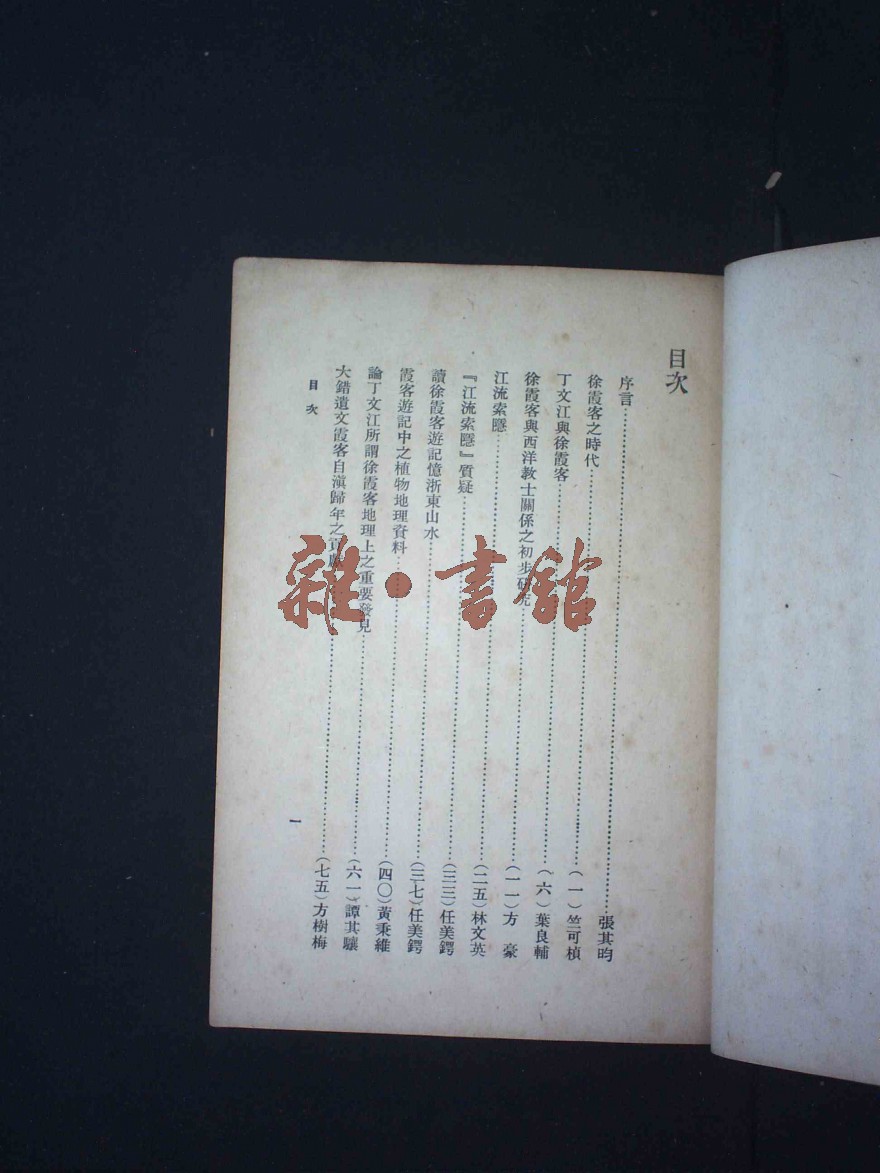 目次
序言……張其昀
徐霞客之時代……(一)竺可楨
丁文江與徐霞客……(六)葉良輔
徐霞客與西洋教士關係之初步研究……(一一)方　豪
江流索隱……(二五)林文英
『江流索隱』質疑……(三三)任美鍔
讀徐霞客遊記憶浙東山水……(三七)任美鍔
霞客遊記中之植物地理資料……(四〇)黃秉維
論丁文江所謂徐霞客地理上之重要發見……(六一)譚其驤
大錯遺文霞客自滇歸年之貢獻……(七五)方樹梅
目次
一
雜·書館